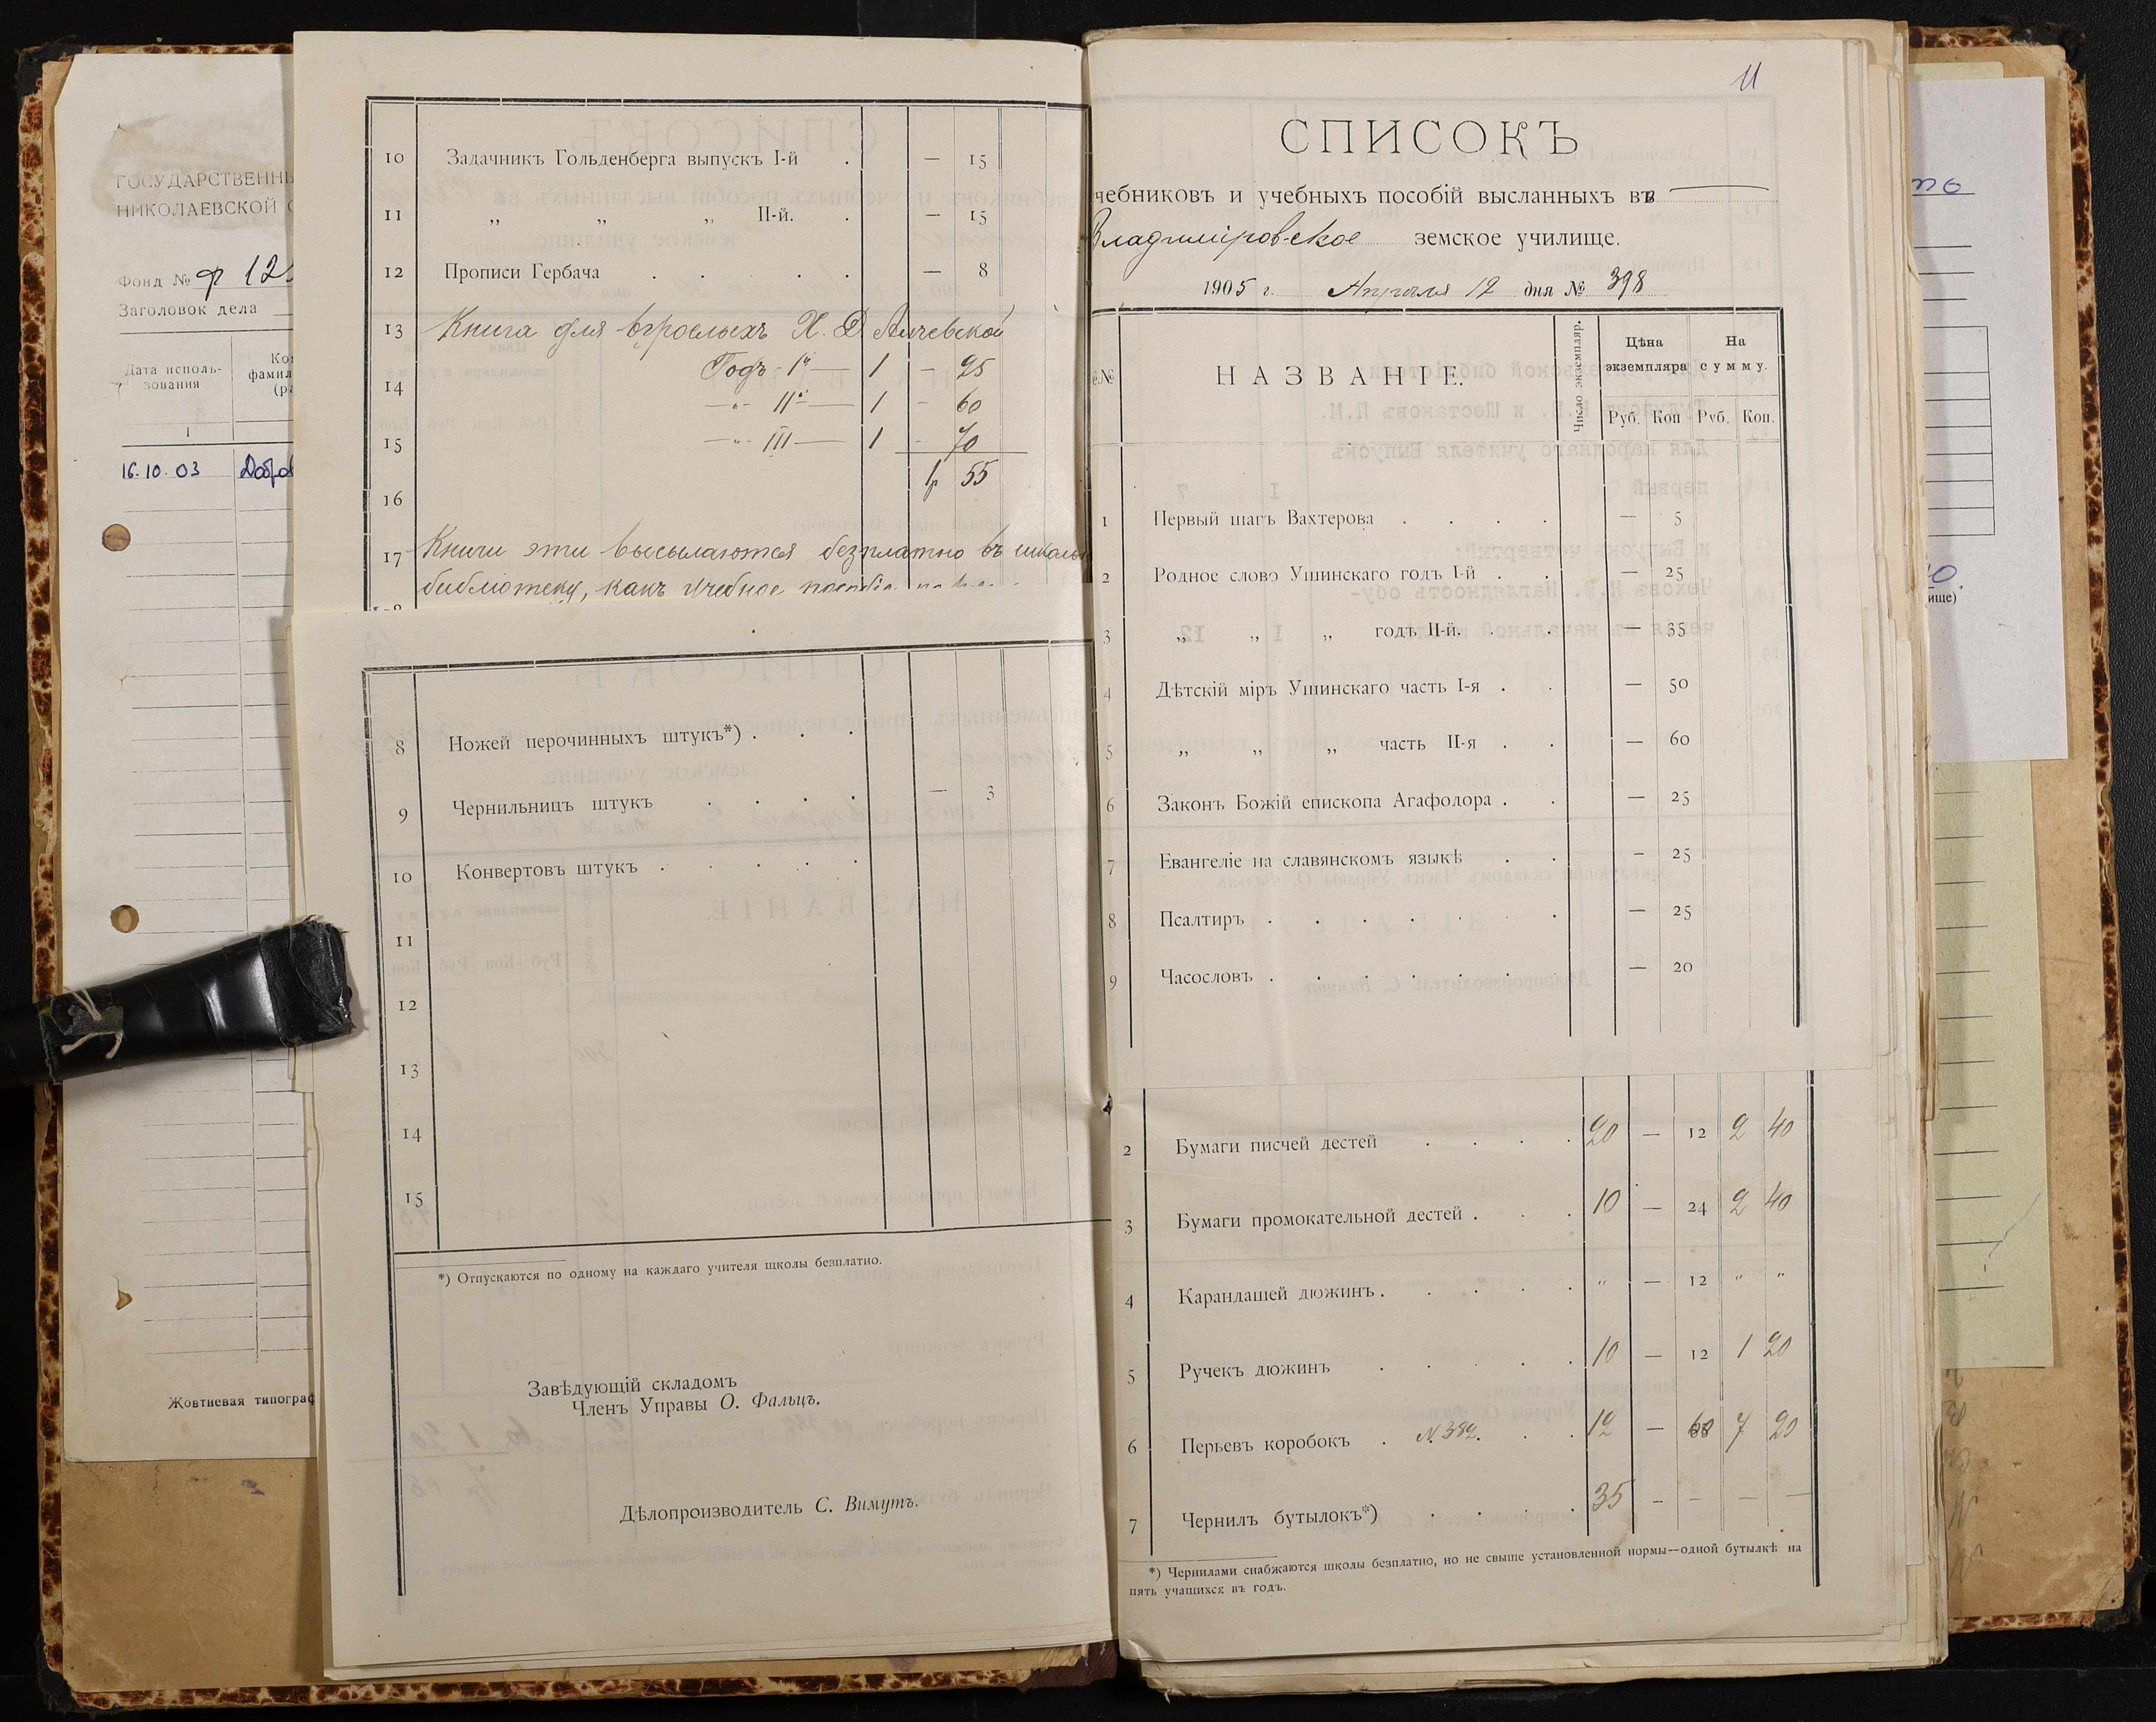 ГОСУДАРСТВЕНН
НИКОЛАЕВСКОЙ
Фонд № ф 12
Заголовок дела
Дата исполь-
зования
фамил
1
16.10.03
Жовтневая типограф
10 Задачникъ Гольденберга выпускъ I-й . — 15
11 „ „ „ II-й. . — 15
12 Прописи Гербача . . . . — 8
13 Книга для взрослыхъ Х. Д. Алчевской
14 Годъ - Iй — 1 - 25
—"— IIй — 1 - 60
15 —"— III — 1 - 70
1р 55
16
17 Книги эти высылаются безплатно въ школьн
библіотеку, какъ учебное пособіе
8 Ножей перочинныхъ штукъ*) . . .
9 Чернильницъ штукъ . . . . — 3
10 Конвертовъ штукъ . . . . .
11
12
13
14
15
*) Отпускаются по одному на каждаго учителя школы безплатно.
Завѣдующій складомъ
Членъ Управы О. Фальцъ.
Дѣлопроизводитель С. Вимутъ.
11
СПИСОКЪ
чебниковъ и учебныхъ пособій высланныхъ въ
Владиміровское земское училище.
1905 г. Апрѣля 12 дня № 398
№ НАЗВАНІЕ. Число экземпляр. Цѣна экземпляра На сумму.
Руб. Коп Руб. Коп.
1 Первый шагъ Вахтерова . . . . — 5
2 Родное слово Ушинскаго годъ I-й . . — 25
3 „ „ „ годъ II-й. . . — 35
4 Дѣтскій міръ Ушинскаго часть I-я . . — 50
5 „ „ „ часть II-я . . — 60
6 Законъ Божій епископа Агафодора . . — 25
7 Евангеліе на славянскомъ языкѣ . . — 25
8 Псалтиръ . . . . . . . — 25
9 Часословъ . . . . . . . — 20
2 Бумаги писчей дестей . . . . 20 — 12 2 40
3 Бумаги промокательной дестей . . . 10 — 24 2 40
4 Карандашей дюжинъ . . . . . " — 12 " "
5 Ручекъ дюжинъ . . . . . 10 — 12 1 20
6 Перьевъ коробокъ . N. 382. . . 12 — 60 7 20
7 Чернилъ бутылокъ*) . . . . 35 — — — —
*) Чернилами снабжаются школы безплатно, но не свыше установленной нормы—одной бутылкѣ на
пять учащихся въ годъ.